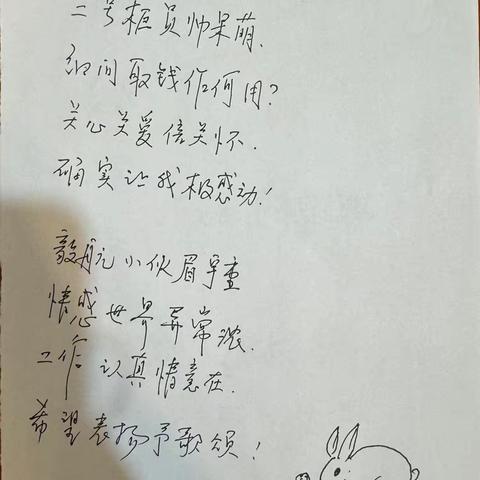 二号柜员帅呆萌.
细问取钱作何用?
关心关爱倍关怀.
确实让我极感动!
毅航小伙眉宇
情感世界异常浓.
工作认真情意在.
希望表扬予歌颂!